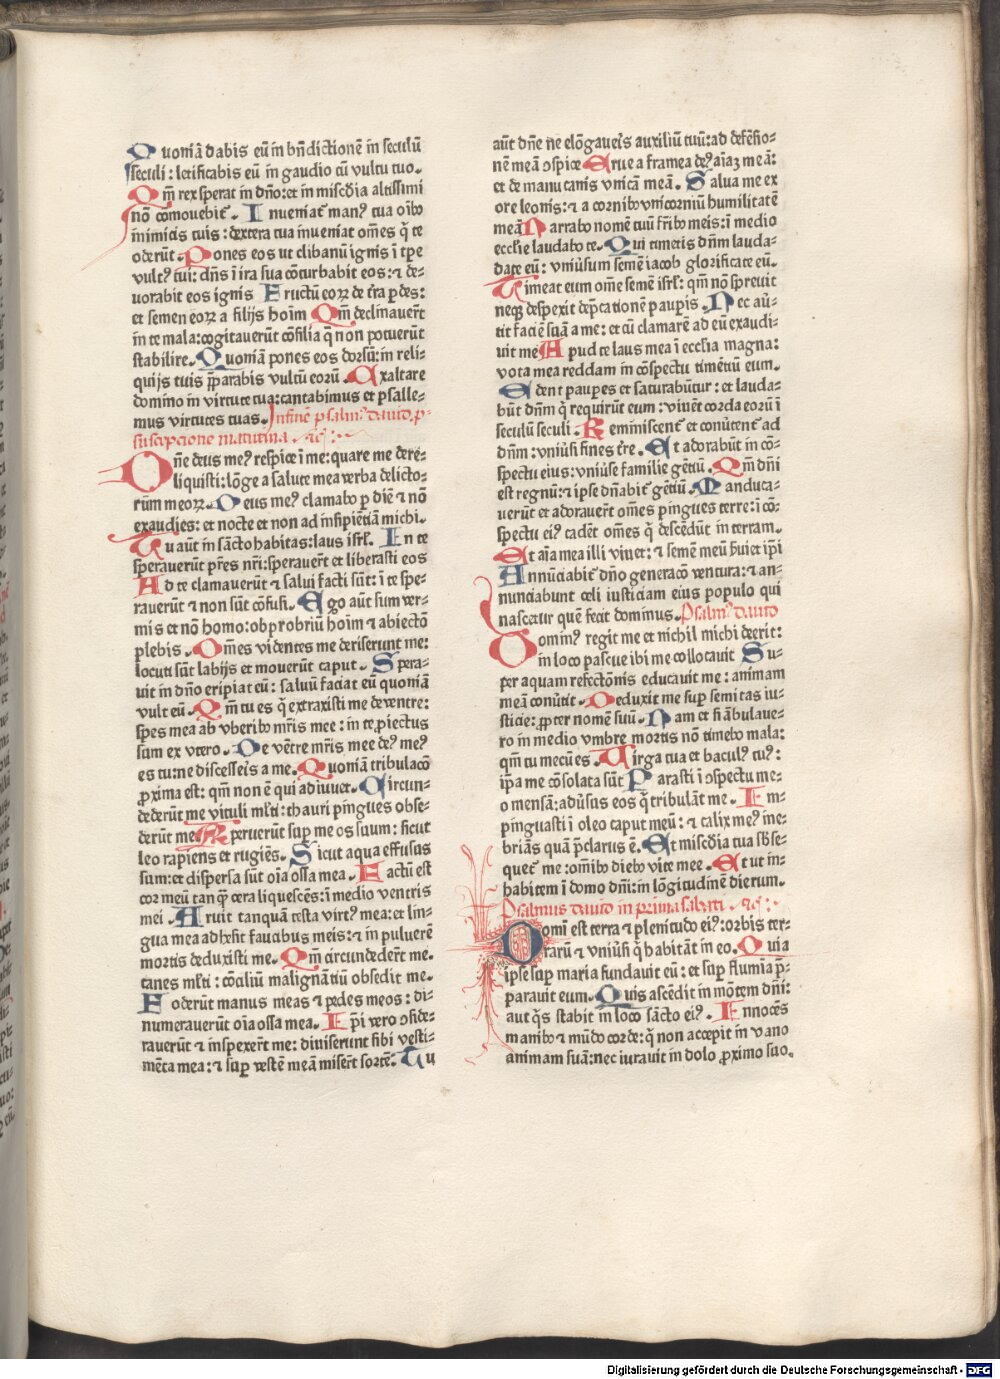 Quoniā dabis eū in bn̄dictionē in seculū
seculi : letificabis eū in gaudio cū vultu tuo.
Qm̄ rex sperat in dn̄o: et in misc̄dia altissimi
nō comouebit᷑. Inueniat᷑ manꝰ tua oīb᷒
inimicis tuis : dextera tua inueniat om̄es q̄ te
oderūt. Pones eos ut clibanū ignis ī tp̄e
vultꝰ tui: dn̄s ī ira sua cōturbabit eos: ⁊ de-
vorabit eos ignis Fructū eoꝝ de t̄ra ꝑdes:
et semen eoꝝ a filijs hoīm Qm̄ declinauer̄t
in te mala: cogitauerūt cōsilia q̄ non potuerūt
stabilire. Quoniā pones eos dorsū: in reli-
quijs tuis p̄parabis vultū eorū. Exaltare
domino in virtute tua: cantabimus et psalle-
mus virtutes tuas. In finē psalmꝰ dauid ꝓ
susceptione matutina.
Dn̄e deus meꝰ respice ī me: quare me dere-
liquisti: lōge a salute mea verba delicto-
rūm meoꝝ. Deus meꝰ clamabo ꝑ diē ⁊ nō
exaudies: et nocte et non ad insipiētiā michi.
Tu aūt in sācto habitas: laus isrl̄. In te
sperauerūt pr̄es nr̄i: sperauer̄t et liberasti eos
Ad te clamauerūt ⁊ salui facti sūt: ī te spe-
rauerūt ⁊ non sūt cōfusi. Ego aūt sum ver-
mis et nō homo: obprobriū hoīm ⁊ abiectō
plebis. Om̄es videntes me deriserunt me:
locuti sūt labijs et mouerūt caput. Spera-
uit in dn̄o eripiat eū: saluū faciat eū quoniā
vult eū. Qm̄ tu es q̄ extraxisti me de ventre:
spes mea ab vberib᷒ mr̄is mee: in te ꝓiectus
sum ex vtero. De vētre mr̄is mee deꝰ meꝰ
es tu: ne discesseīs a me. Quoniā tribulacō
ꝓxima est: qm̄ non ē qui adiuuet. Circun-
dederūt me vituli ml̄ti: thauri pingues obse-
derūt me. Aperuerūt suꝑ me os suum: sicut
leo rapiens et rugiēs. Sicut aqua effusus
sum: et dispersa sūt oīa ossa mea. Factū est
cor meū tanqͣ cera liquescēs: ī medio ventris
mei. Aruit tanquā testa virtꝰ mea: et lin-
gua mea adhesit faucibus meis: ⁊ in puluerē
mortis deduxisti me. Qm̄ circundeder̄t me
canes ml̄ti: cōciliū malignātiū obsedit me.
Foderūt manus meas ⁊ pedes meos: di-
numerauerūt oīa ossa mea. Ip̄i vero ↄside-
rauerūt ⁊ inspexer̄t me: diuiserunt sibi vesti-
mēta mea: ⁊ suꝑ vestē meā miser̄t sortē. Tu
aūt dn̄e ne elōgaueīs auxiliū tuū: ad defēsio-
nē meā ↄspice Erue a framea deꝰ aīaꝫ meā:
et de manu canis vnicā meā. Salua me ex
ore leonis: ⁊ a cornib᷒ vnicorniū humilitatē
meā Narrabo nomē tuū fr̄ib᷒ meis: ī medio
eccl̄ie laudabo te. Qui timetis dn̄m lauda-
date eū: vniūsum semē iacob glorificate eū.
Timeat eum om̄e semē isrl̄: qm̄ nō spreuit
neqꝫ despexit dep̄cationē pauꝑis. Nec aū-
tit faciē suā a me: et cū clamarē ad eū exaudi-
uit me Apud te laus mea ī eccl̄ia magna:
vota mea reddam in cōspectu timētiū eum.
Edent pauꝑes et saturabūtur: et lauda-
būt dn̄m q̄ requirūt eum: viuēt corda eorū ī
seculū seculi. Reminiscent᷑ et cōūtent᷑ ad
dn̄m: vniūsi fines t̄re. Et adorabūt in cō-
spectu eius: vniūse familie gētiū. Qm̄ dn̄i
est regnū: ⁊ ipse dn̄abit᷑ gētiū. Manduca-
uerūt et adorauer̄t om̄es pīngues terre: ī cō-
spectu eiꝰ cadēt om̄es q̄ descēdūt in terram.
Et aīa mea illi viuet: ⁊ semē meū s̄uiet ip̄i
Annūciabit᷑ dn̄o generacō ventura: ⁊ an-
nunciabunt celi iusticiam eius populo qui
nascetur quē fecit dominus. Psalmꝰ dauid
Dominꝰ regit me et nichil michi deerit:
in loco pascue ibi me collocauit Su-
per aquam refectōnis educauit me: animam
meā conūtit. Deduxit me suꝑ semitas iu-
sticie: ꝓpter nomē suū. Nam et si ābulaue-
ro in medio vmbre mortis nō timebo mala:
qm̄ tu mecū es. Virga tua et baculꝰ tuꝰ:
ip̄a me cōsolata sūt Parasti ī ↄspectu me-
o mensā: adūsus eos q̄ tribulāt me. Im-
pīnguasti ī oleo caput meū: ⁊ calix meꝰ ine-
briās quā p̄clarus ē. Et misc̄dia tua sb̄se-
quet᷑ me: om̄ib᷒ dieb᷒ vite mee. Et ut in-
habitem ī domo dn̄i: in lōgitudinē dierum.
Psalmus dauid in prima sabati.
Domī est terra ⁊ plenitudo eiꝰ: orbis ter-
rarū ⁊ vniūsi q̄ habitāt in eo. Quia
ipse suꝑ maria fundauit eū: et suꝑ flumīa p̄-
parauit eum. Quis ascēdit in mōtem dn̄i:
aut q̄s stabit in loco sācto eiꝰ. Innocēs
manib᷒ ⁊ mūdo corde: q̄ non accepit in vano
animam suā: nec iurauit in dolo ꝓximo suo.
Digitalisierung gefördert durch die Deutsche Forschungsgemeinschaft - DFG